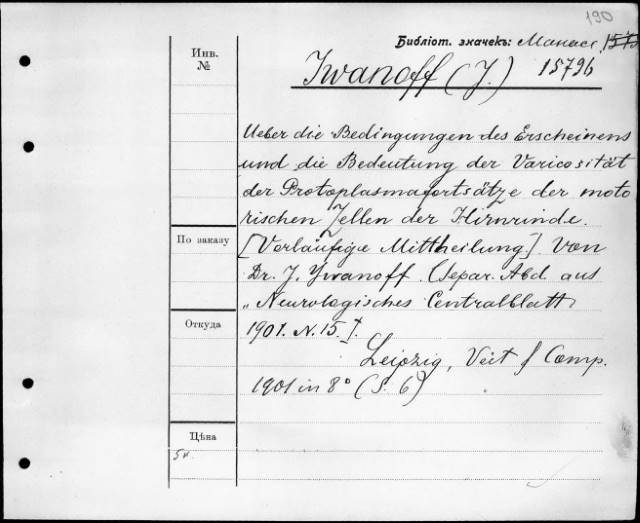 190
Библіот. значекъ: Манасе
Инв.
№
Iwanoff (J.) 15796
Ueber die Bedingungen des Erscheinens
und die Bedeutung der Varicosität
der Protoplasmafortsätze der moto
rischen Zellen der Hirnrinde.
По заказу
[Vorläufige Mittheilung]. Von
Dr. J. Ywanoff. (Separ. Abd. aus
„Neurologisches Centralblatt
Откуда
1901. N. 15.].
Leipzig, Veit & Comp.
1901 in 8° (S. 6)
Цѣна